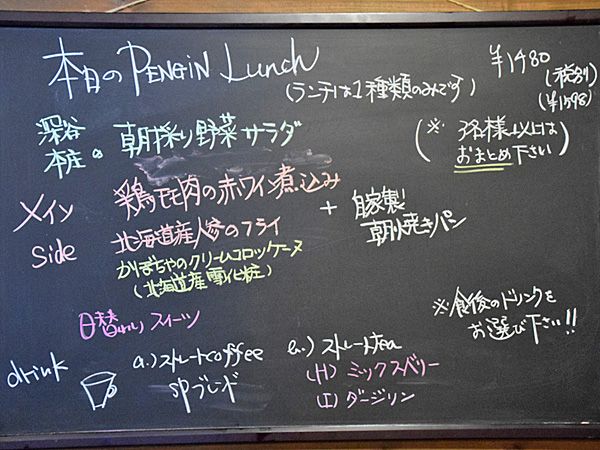 本日の PENGIN Lunch
(ランチは1種類のみです)
¥1480
(税別)
(¥1598)
(※ 3名様以上は
おまとめ下さい)
深谷
本庄の 朝採り野菜サラダ
メイン 鶏モモ肉の赤ワイン煮込み
Side 北海道産人参のフライ
かぼちゃのクリームコロッケーヌ
(北海道産雪化粧)
+ 自家製
朝焼きパン
日替わりスイーツ
※食後のドリンクを
お選び下さい!!
drink
a.) ストレートcoffee
SPブレンド
ストレートtea
(H) ミックスベリー
(I) ダージリン